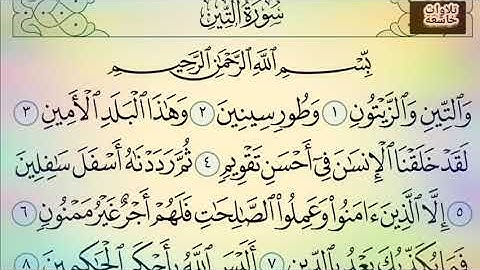 سُورَةُ التِّينِ
تلاوات
خاشعة
بِسْمِ ٱللَّهِ ٱلرَّحْمَٰنِ ٱلرَّحِيمِ
وَٱلتِّينِ وَٱلزَّيْتُونِ ١ وَطُورِ سِينِينَ ٢ وَهَٰذَا ٱلْبَلَدِ ٱلْأَمِينِ ٣
لَقَدْ خَلَقْنَا ٱلْإِنسَٰنَ فِىٓ أَحْسَنِ تَقْوِيمٍ ٤ ثُمَّ رَدَدْنَٰهُ أَسْفَلَ سَٰفِلِينَ
٥ إِلَّا ٱلَّذِينَ ءَامَنُوا۟ وَعَمِلُوا۟ ٱلصَّٰلِحَٰتِ فَلَهُمْ أَجْرٌ غَيْرُ مَمْنُونٍ ٦
فَمَا يُكَذِّبُكَ بَعْدُ بِٱلدِّينِ ٧ أَلَيْسَ ٱللَّهُ بِأَحْكَمِ ٱلْحَٰكِمِينَ ٨